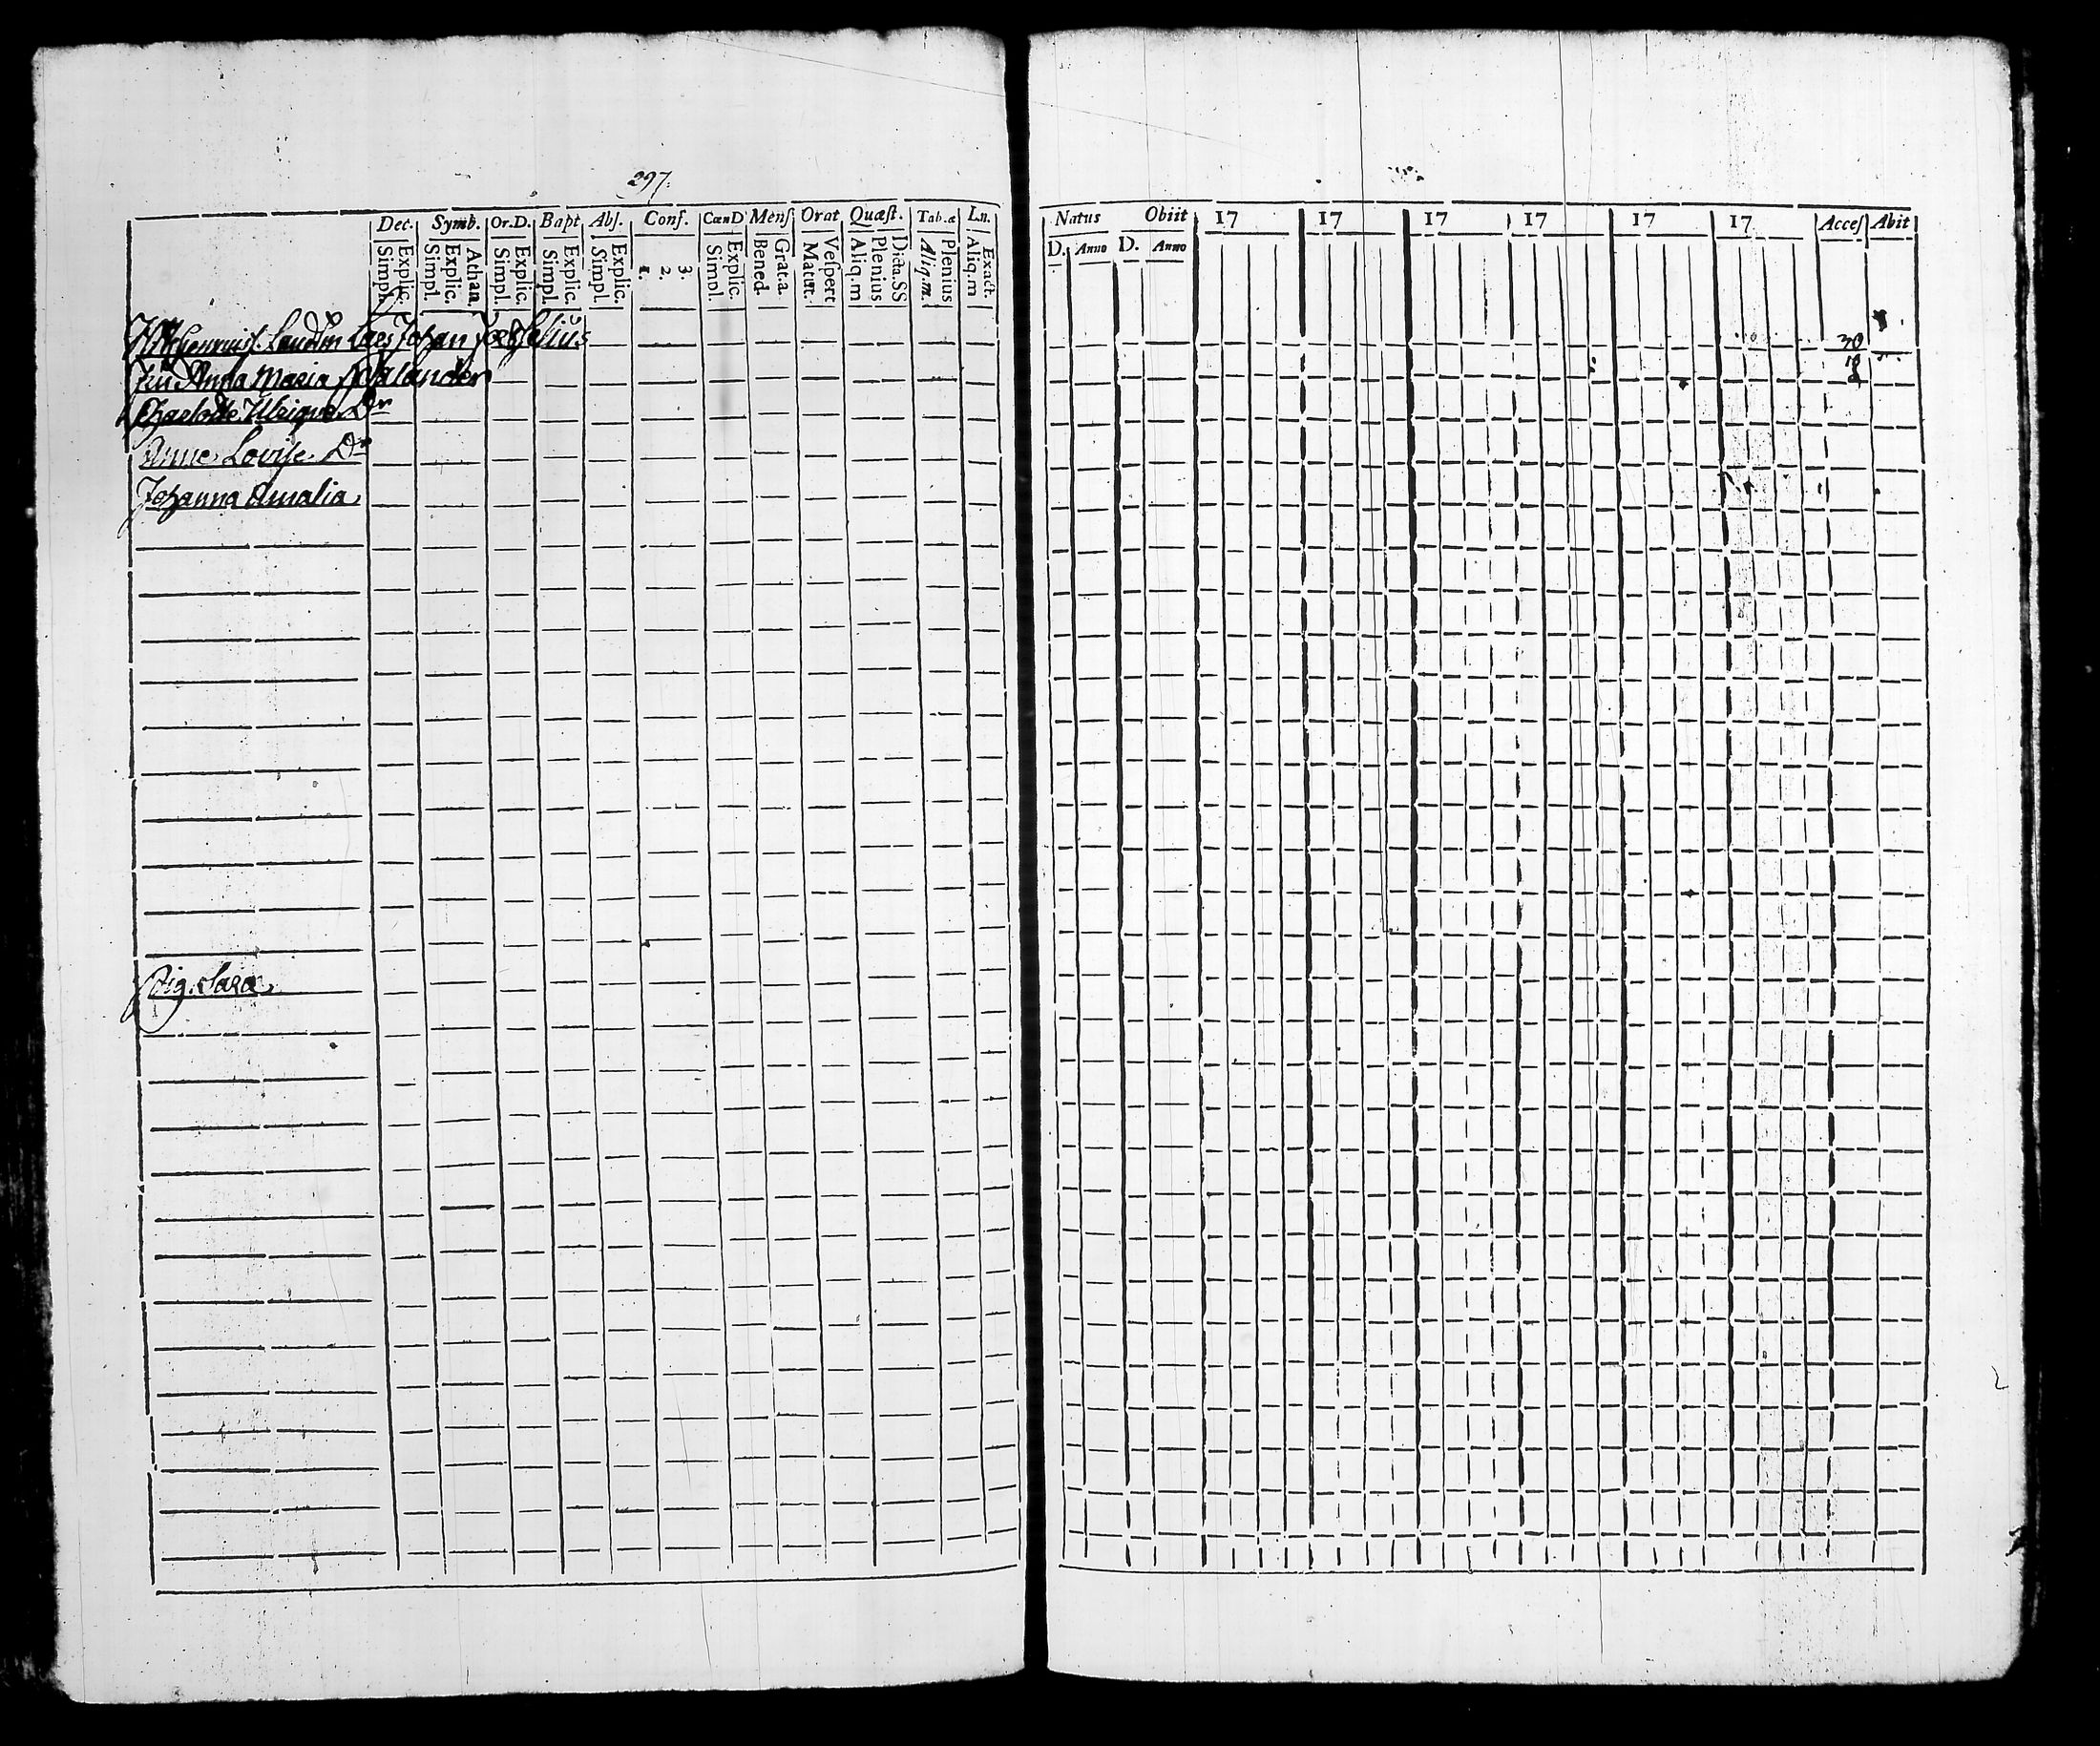 297.
Dec. Symb. Or.D. Bapt Abſ. Conf. CœnD Menſ Orat Quæſt. Tab.æ Ln.
Explic. Simpl. Athan. Explic. Simpl. Explic. Simpl. Explic. Simpl. Explic. Simpl. 3. 2. 1. Explic. Simpl. Grat.a. Bened. Veſpert Matut. Dicta.SS Plenius Aliq.m Plenius Aliq.m. Exact. Aliq.m
Johan
fru Anna Maria
Charlotte Ulrique Dr
Anne Lovise Dr
Johanna Amalia
Pig. Sara
Natus Obiit 17 17 17 17 17 17 Acceſ Abit
D. Anno D. Anno
30
18